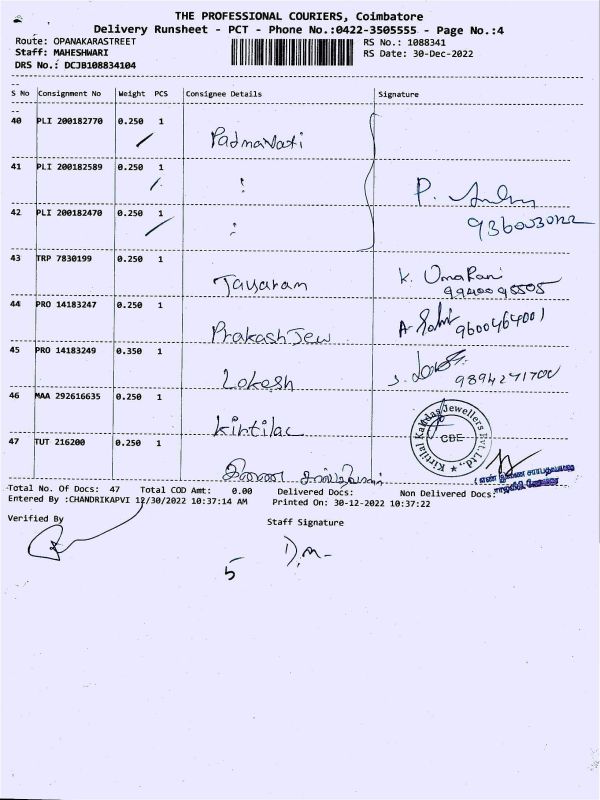 THE PROFESSIONAL COURIERS, Coimbatore
Delivery Runsheet - PCT - Phone No.:0422-3505555 - Page No.:4
Route: OPANAKARASTREET RS No.: 1088341
Staff: MAHESHWARI RS Date: 30-Dec-2022
DRS No.: DCJB108834104
S No Consignment No Weight PCS Consignee Details Signature
40 PLI 200182770 0.250 1
Padmavati
41 PLI 200182589 0.250 1
P.
42 PLI 200182470 0.250 1
43 TRP 7830199 0.250 1
Jayaram K. UmaRani
9940095505
44 PRO 14183247 0.250 1
Prakash Jew 9600464001
45 PRO 14183249 0.350 1
Lokesh
46 MAA 292616635 0.250 1
kirtilal Kirtilal Kalidas Jewellers Pvt. Ltd. CBE
47 TUT 216200 0.250 1
Total No. Of Docs: 47 Total COD Amt: 0.00 Delivered Docs: Non Delivered Docs:
Entered By :CHANDRIKAPVI 12/30/2022 10:37:14 AM Printed On: 30-12-2022 10:37:22
Verified By Staff Signature
5